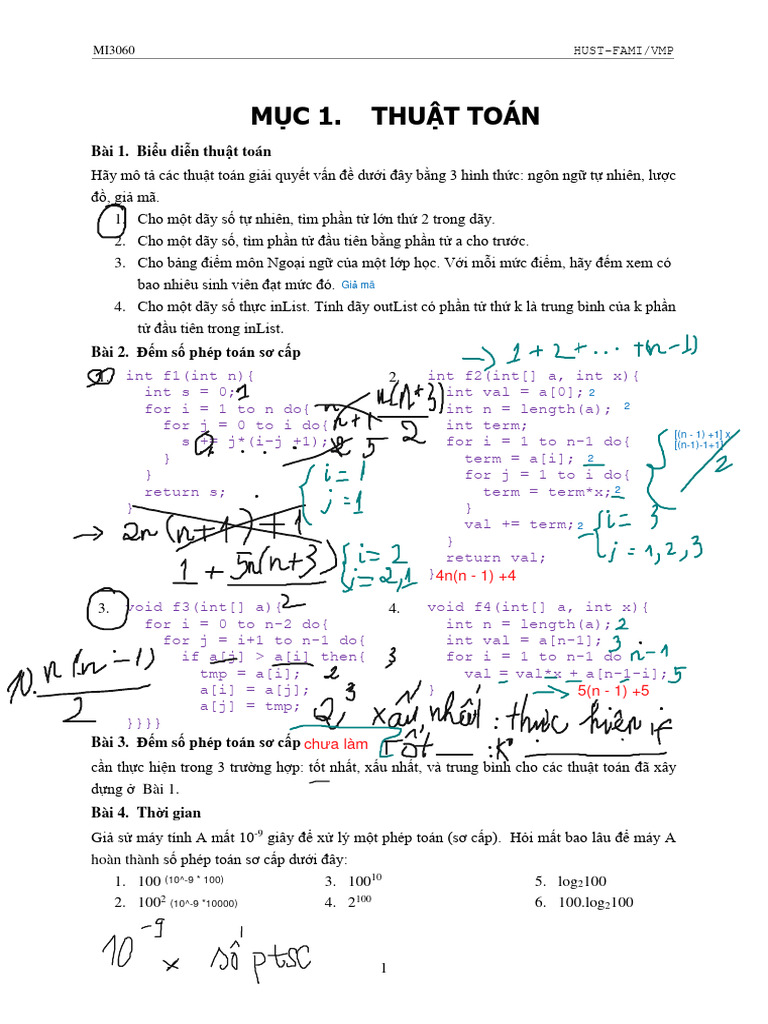 MI3060 HUST-FAMI/VMP
MỤC 1. THUẬT TOÁN
Bài 1. Biểu diễn thuật toán
Hãy mô tả các thuật toán giải quyết vấn đề dưới đây bằng 3 hình thức: ngôn ngữ tự nhiên, lược
đồ, giả mã.
1. Cho một dãy số tự nhiên, tìm phần tử lớn thứ 2 trong dãy.
2. Cho một dãy số, tìm phần tử đầu tiên bằng phần tử a cho trước.
3. Cho bảng điểm môn Ngoại ngữ của một lớp học. Với mỗi mức điểm, hãy đếm xem có
bao nhiêu sinh viên đạt mức đó. Giả mã
4. Cho một dãy số thực inList. Tính dãy outList có phần tử thứ k là trung bình của k phần
tử đầu tiên trong inList.
Bài 2. Đếm số phép toán sơ cấp
→ 1 + 2 + ... + (n-1)
1. int f1(int n){
int s = 0; 1
for i = 1 to n do{ n
for j = 0 to i do{ n+1
s += j*(i-j +1); 5
}
}
return s;
}
n(n+3)
2
i = 1
j = 1
→ 2n(n+1)+1
1 + 5n(n+3)
i = 2
j = 2,1
2. int f2(int[] a, int x){
int val = a[0]; 2
int n = length(a); 2
int term;
for i = 1 to n-1 do{
term = a[i]; 2
for j = 1 to i do{
term = term*x; 2
}
val += term; 2
}
return val;
} 4n(n - 1) +4
[(n - 1) +1] x
[(n-1)-1+1]
2
i = 3
j = 1,2,3
3. void f3(int[] a){ 2
for i = 0 to n-2 do{
for j = i+1 to n-1 do{
if a[j] > a[i] then{ 3
tmp = a[i]; 2
a[i] = a[j]; 3
a[j] = tmp; 2
}}}}
10. n(n-1)
2
4. void f4(int[] a, int x){
int n = length(a); 2
int val = a[n-1]; 3
for i = 1 to n-1 do n-1
val = val*x + a[n-1-i]; 5
} → 5(n - 1) +5
xấu nhất : thực hiện if
Tốt ___ : K°
Bài 3. Đếm số phép toán sơ cấp chưa làm
cần thực hiện trong 3 trường hợp: tốt nhất, xấu nhất, và trung bình cho các thuật toán đã xây
dựng ở Bài 1.
Bài 4. Thời gian
Giả sử máy tính A mất 10⁻⁹ giây để xử lý một phép toán (sơ cấp). Hỏi mất bao lâu để máy A
hoàn thành số phép toán sơ cấp dưới đây:
1. 100 (10^-9 * 100) 3. 100¹⁰ 5. log₂100
2. 100² (10^-9 *10000) 4. 2¹⁰⁰ 6. 100.log₂100
10⁻⁹ x số ptsc
1